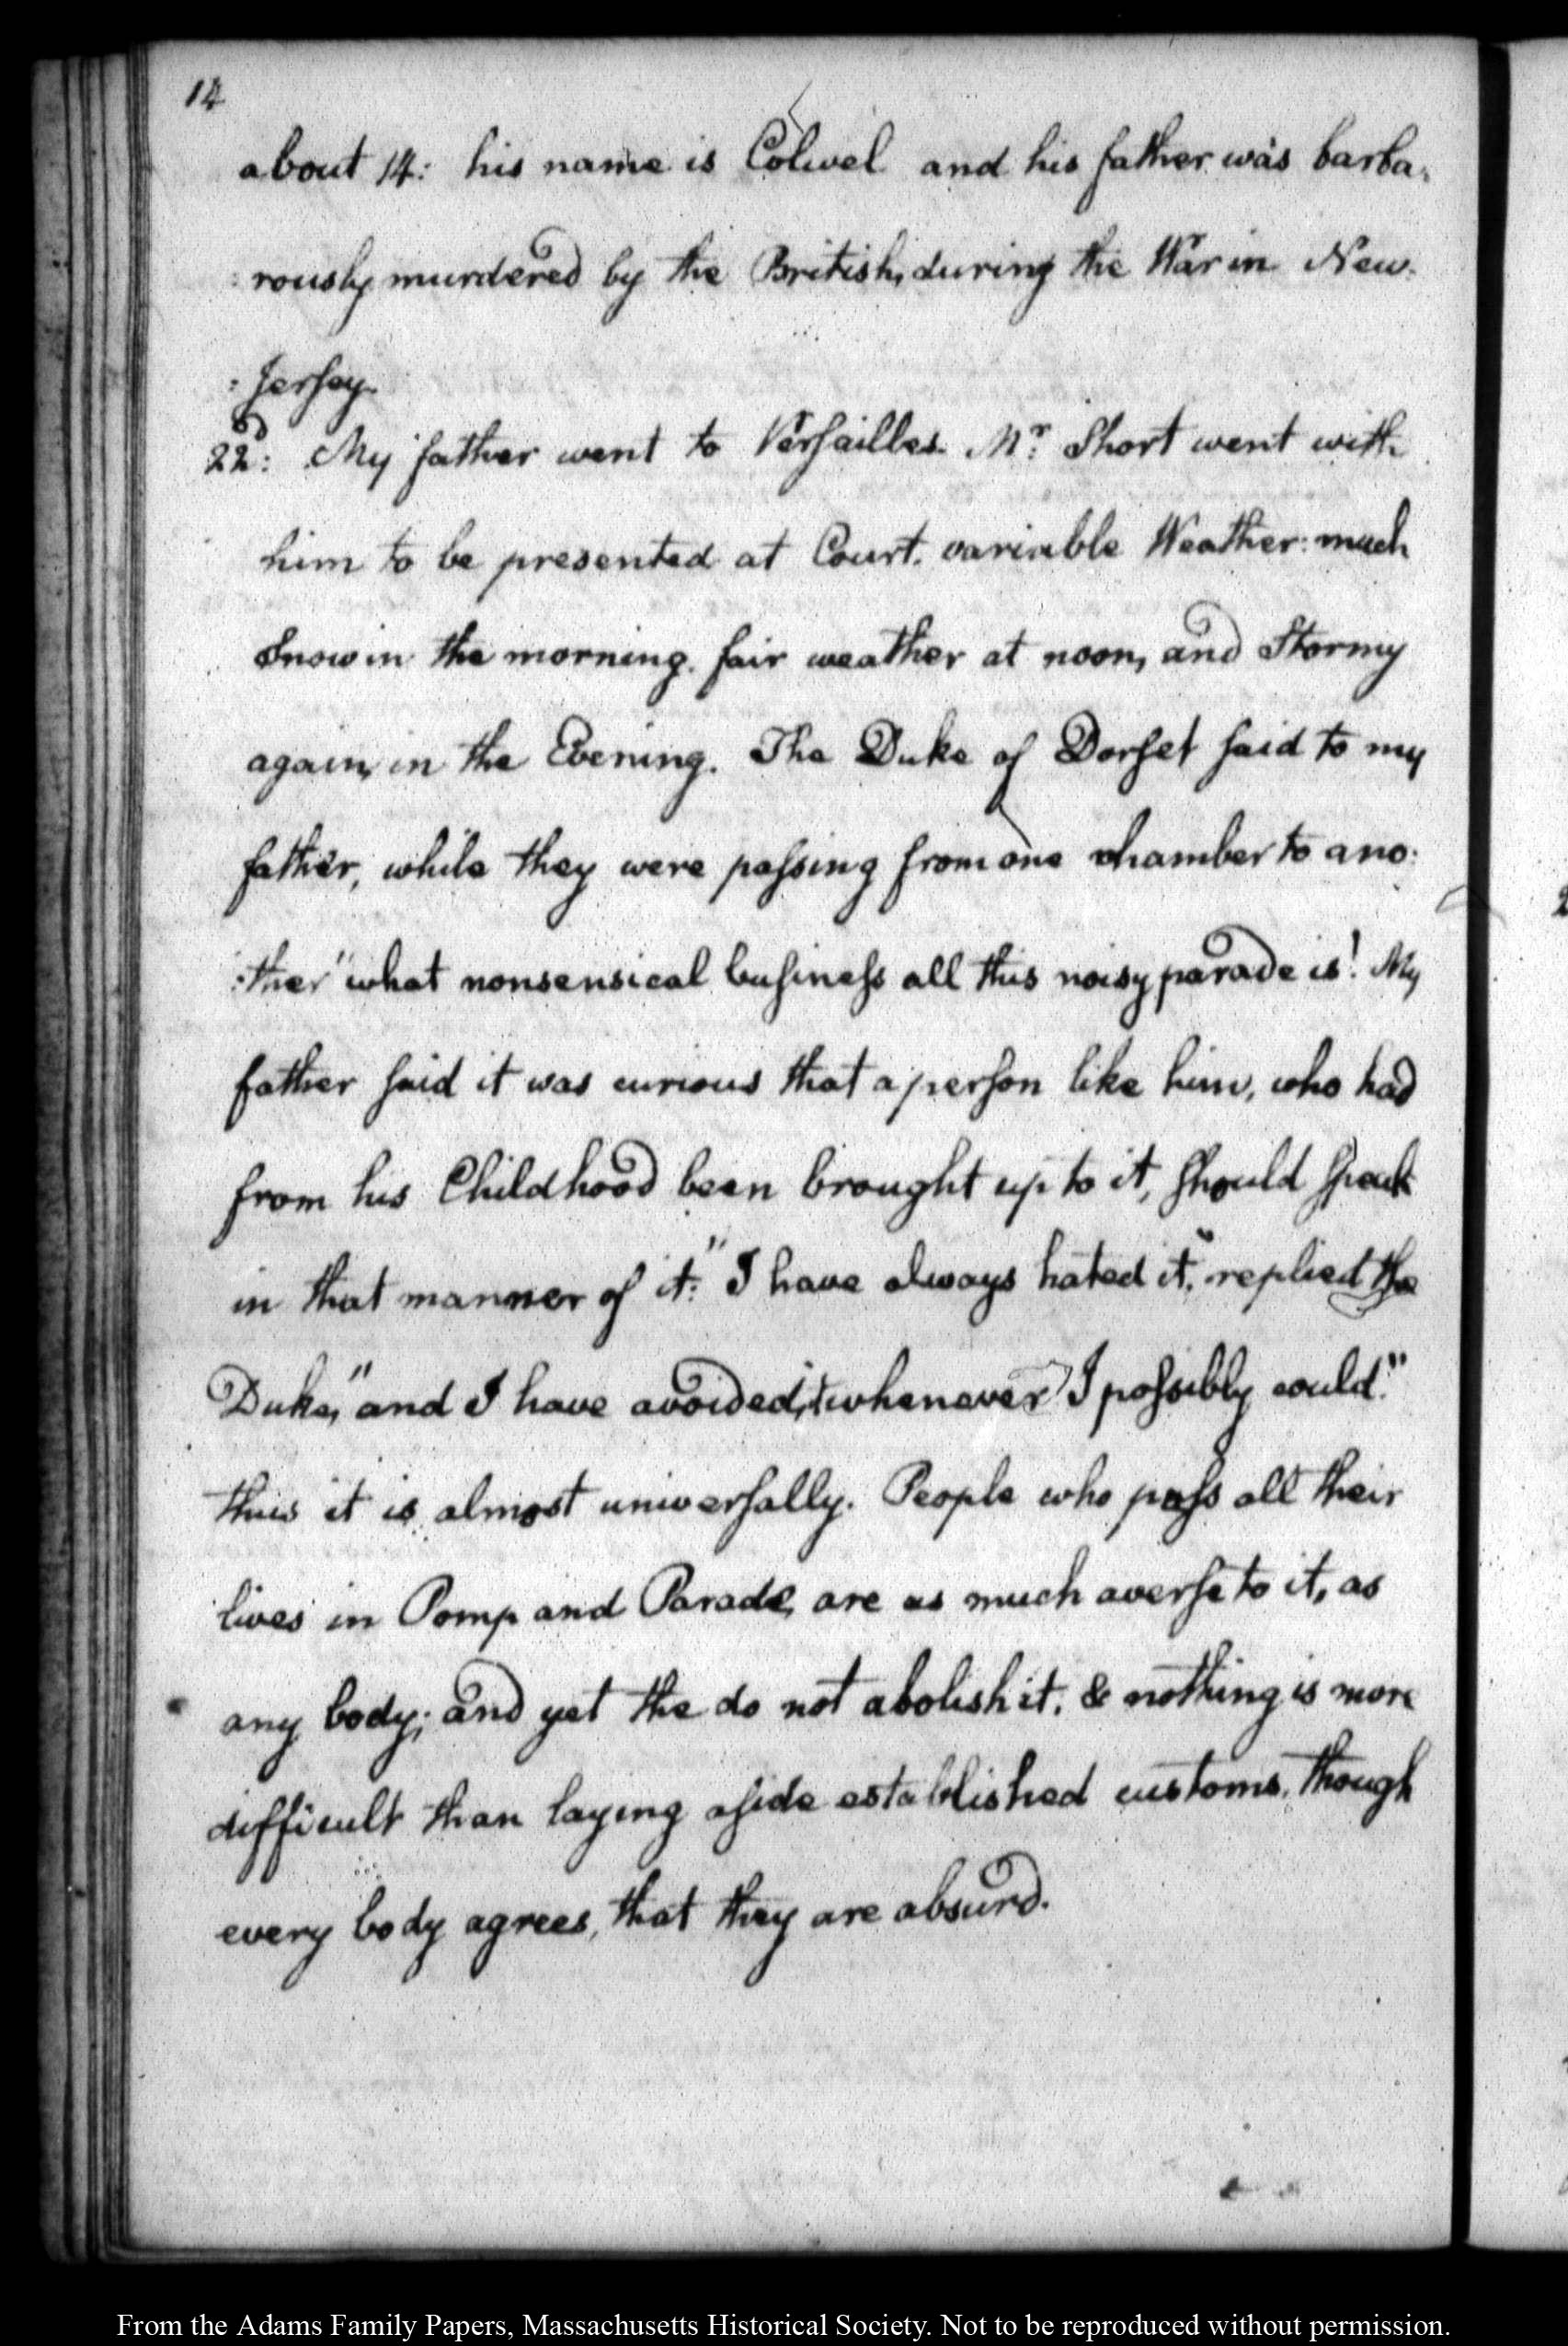 14
about 14: his name is Colwel and his father was barba:
:rously murdered by the British, during the War in New:
:Jersey.
22d: My father went to Versailles. Mr: Short went with
him to be presented at Court. variable Weather: much
Snow in the morning. fair weather at noon, and Stormy
again, in the Evening. The Duke of Dorset said to my
father, while they were passing from one chamber to ano:
:ther "what nonsensical business all this noisy parade is! My
father said it was curious that a person like him, who had
from his Childhood been brought up to it, should speak
in that manner of it: "I have always hated it," replied the
Duke, "and I have avoided it whenever I possibly could."
thus it is almost universally. People who pass all their
lives in Pomp and Parade, are as much averse to it, as
any body; and yet the do not abolish it. & nothing is more
difficult than laying aside established customs, though
every body agrees, that they are absurd.
From the Adams Family Papers, Massachusetts Historical Society. Not to be reproduced without permission.